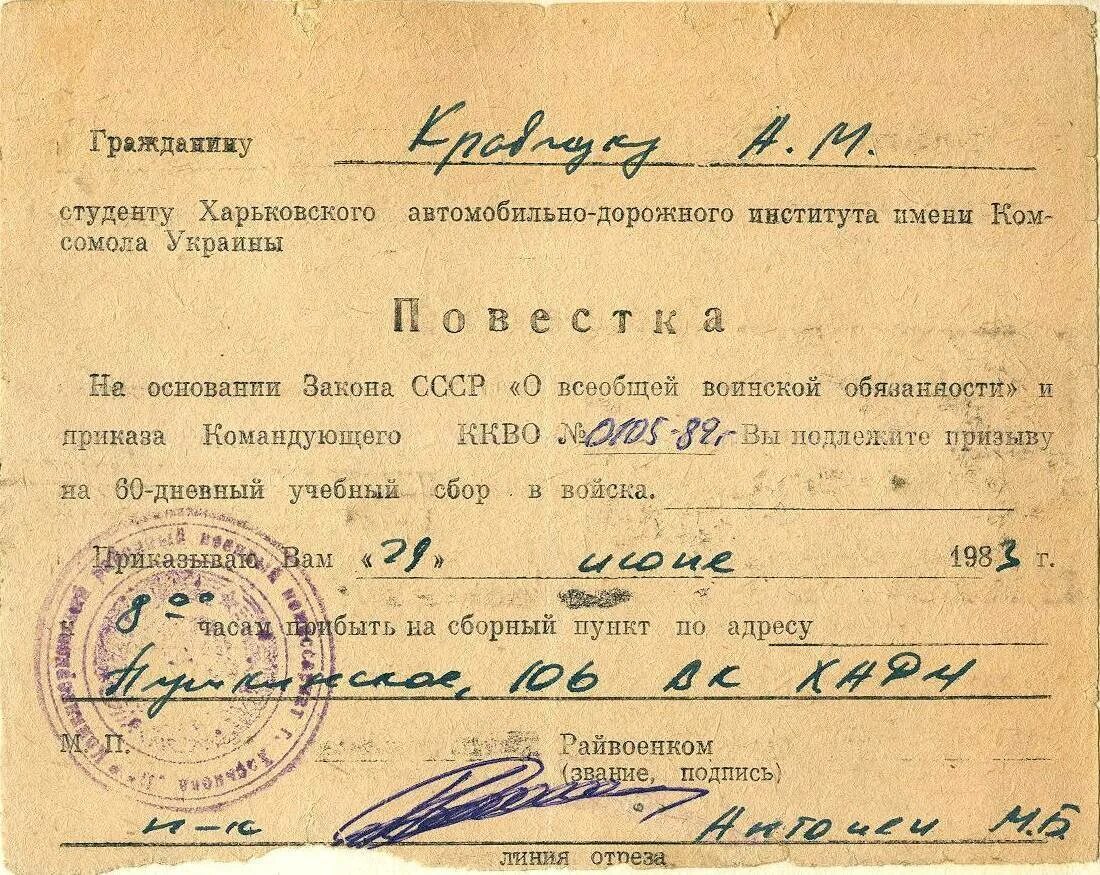 Гражданину Кравчуку А. М.
студенту Харьковского автомобильно-дорожного института имени Ком-
сомола Украины
Повестка
На основании Закона СССР «О всеобщей воинской обязанности» и
приказа Командующего ККВО № 0105-89г Вы подлежите призыву
на 60-дневный учебный сбор в войска.
Приказываю Вам «29» июня 1983 г.
8 00 часам прибыть на сборный пункт по адресу
Пушкинская, 106 ВК ХАДИ
М. П. Райвоенком
(звание, подпись)
п-к М.Б
линия отреза
военный комиссариат г. Харькова